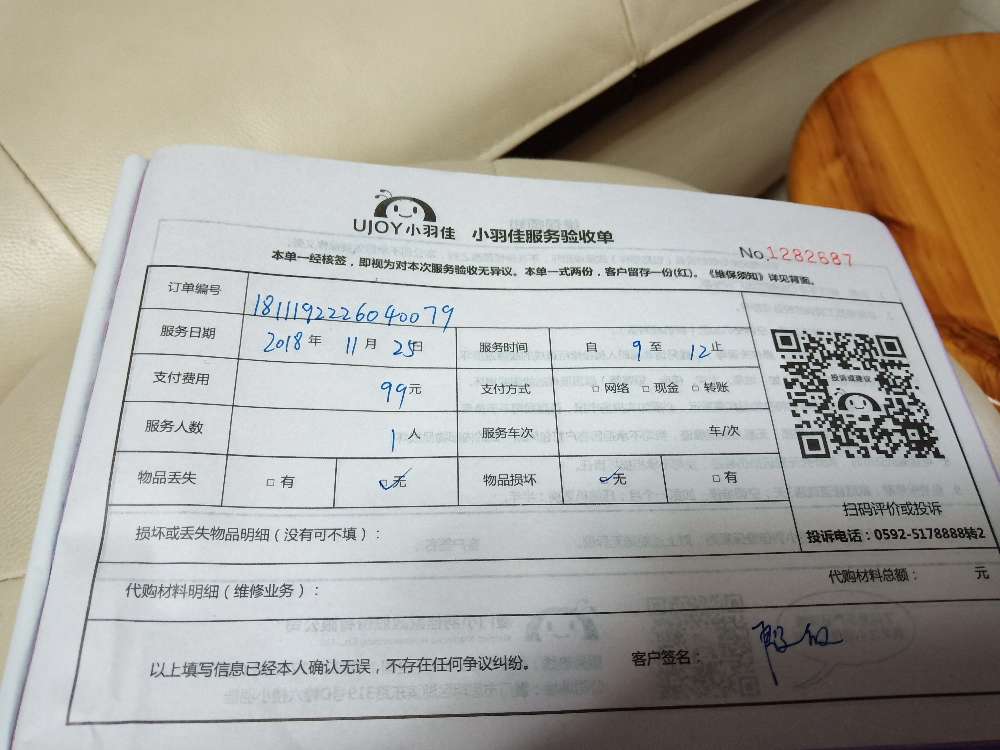 UJOY小羽佳 小羽佳服务验收单
No.1282687
本单一经核签，即视为对本次服务验收无异议。本单一式两份，客户留存一份(红)。《维保须知》详见背面。
订单编号 1811192226040079
服务日期 2018年 11月 25日 服务时间 自 9 至 12止
支付费用 99元 支付方式 □ 网络 □ 现金 □ 转账
服务人数 1人 服务车次 车/次
物品丢失 □ 有 ☑无 物品损坏 ☑无 □ 有
投诉或建议
扫码评价或投诉
投诉电话：0592-5178888转2
损坏或丢失物品明细（没有可不填）：
代购材料明细（维修业务）： 代购材料总额： 元
以上填写信息已经本人确认无误，不存在任何争议纠纷。 客户签名：